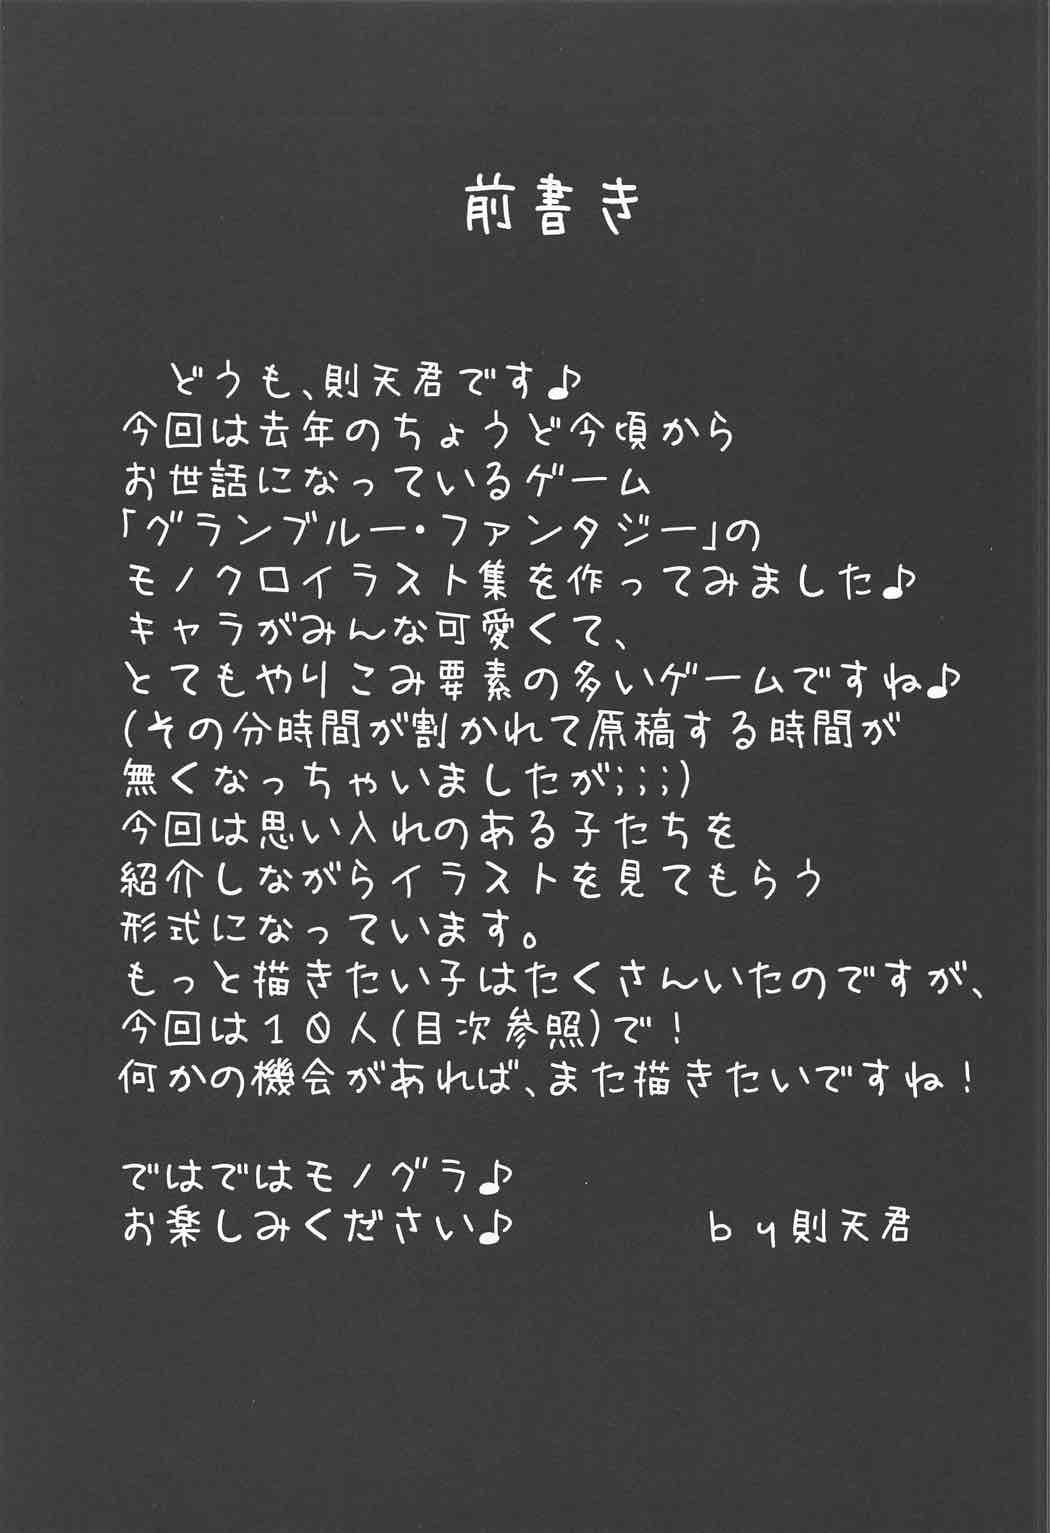 前書き
どうも、則天君です♪
今回は去年のちょうど今頃から
お世話になっているゲーム
「グランブルー・ファンタジー」の
モノクロイラスト集を作ってみました♪
キャラがみんな可愛くて、
とてもやりこみ要素の多いゲームですね♪
(その分時間が割かれて原稿する時間が
無くなっちゃいましたが;;;)
今回は思い入れのある子たちを
紹介しながらイラストを見てもらう
形式になっています。
もっと描きたい子はたくさんいたのですが、
今回は10人(目次参照)で!
何かの機会があれば、また描きたいですね!
ではではモノグラ♪
お楽しみください♪ by則天君